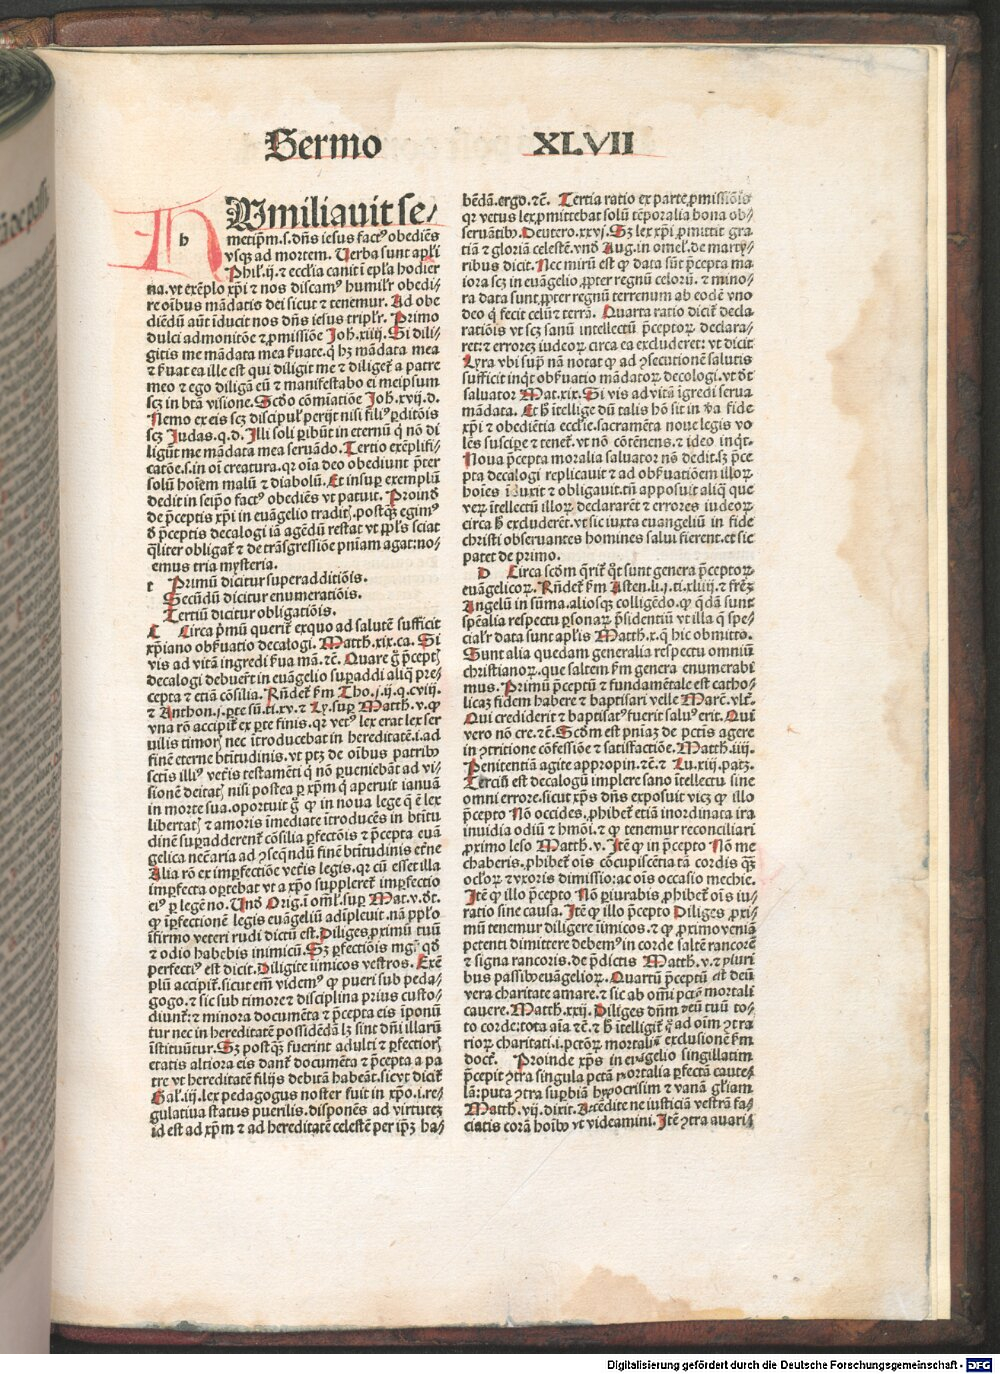 Sermo XLVII
h
Umiliauit se⸗
metip̄m.s.dn̄s iesus factꝰ obediēs
vsqꝫ ad mortem. Verba sunt apl̄i
Phil̓.ij.⁊ eccl̓ia canit ī ep̄la hodier
na.vt exēplo xp̄i ⁊ nos discamꝰ humilr̄ obedi⸗
re oībus mādatis dei sicut ⁊ tenemur. Ad obe
diēdū aūt īducit nos dn̄s iesus triplr̄. Primo
dulci admonitōe ⁊ ꝓmissiōe Joh̄.xiiij. Si dili⸗
gitis me mādata mea ẜuate.q̇ hꝫ mādata mea
⁊ ẜuat ea ille est qui diligit me ⁊ diliget̄ a patre
meo ⁊ ego diligā eū ⁊ manifestabo ei meipsum
scꝫ in btā visione. Scd̄o cōmiatiōe Joh̄.xvij.d.
Nemo ex eis scꝫ discipul̓ perijt nisi filiꝰ ꝑditōis
scꝫ Judas.q.d. Illi soli ꝑibūt in eternū q̇ nō di
ligūt me mādata mea seruādo. Tertio exēplifi⸗
catōe.s.in oī creatura.qꝛ oīa deo obediunt p̄ter
solū hoīem malū ⁊ diabolū. Et insuꝑ exemplū
dedit in seip̄o factꝰ obediēs vt patuit. Proind̄
de p̄ceptis xp̄i in euāgelio tradit̓.postqꝫ egimꝰ
d̓ p̄ceptis decalogi iā agēdū restat vt ppl̄s sciat
qͣliter obligat̄ ⁊ de trāsgressiōe pniam agat:no⸗
temus tria mysteria.
Primū dicitur superadditiōis.
Secūdū dicitur enumeratiōis.
Tertiū dicitur obligatiōis.
C Circa p̄mū querit̄ exquo ad salutē sufficit
xp̄iano obẜuatio decalogi. Matth̄.xix.ca. Si
vis ad vitā ingredi ẜua mā.⁊c̄. Quare g̊ p̄cept̓
decalogi debuer̄t in euāgelio suꝑaddi aliq̄ pre⸗
cepta ⁊ etiā cōsilia. Rn̄det̄ ẜm Tho.j.ij.q.cviij.
⁊ Anthon.j.ꝑte sū.ti.xv.⁊ Ly.suꝑ Matth̄.v.ꝙ
vna rō accipit̄ ex ꝑte finis.qꝛ vetꝰ lex erat lex ser
uilis timor̓ nec ītroducebat in hereditatē.i.ad
finē eterne btītudinis.vt ptꝫ de oībus patribꝰ
sctīs illiꝰ vet̓is testamēti q̇ nō ꝑueniebāt ad vi⸗
sionē deitat̓ nisi postea ꝑ xp̄m q̇ aperuit ianuā
in morte sua.oportuit g̊ ꝙ in noua lege q̄ ē lex
libertat̓ ⁊ amoris īmediate ītroducēs in btītu
dinē suꝑadderent̄ cōsilia ꝑfectōis ⁊ p̄cepta euā
gelica necāria ad ↄseq̄ndū finē btītudinis et̓ne
Alia rō ex imꝑfectiōe vet̓is legis.qꝛ cū esset illa
imꝑfecta oꝑtebat vt a xp̄o suppleret̄ imꝑfectio
eiꝰ ꝑ legē no. Und̄ Orig.ī oml̄.suꝑ Mat.v.d̄t.
ꝙ īꝑfectionē legis euāgeliū adīpleuit.nā pp̄lo
īfirmo veteri rudi dictū est. Diliges ꝓximū tuū
⁊ odio habebis inimicū. Sꝫ ꝑfectiōis mgr̄ qd̄
perfectiꝰ est dicit. Diligite īimicos vestros. Exē
plū accipit̄.sicut em̄ videmꝰ ꝙ pueri sub peda⸗
gogo.⁊ sic sub timore ⁊ disciplina prius custo⸗
diunt̄:⁊ minora documēta ⁊ p̄cepta eis īponū
tur nec in hereditatē possidēdā lꝫ sint dn̄i illarū
īstituūtur. Sꝫ postqꝫ fuerint adulti ⁊ ꝑfectior̓
etatis altiora eis dant̄ documēta ⁊ p̄cepta a pa
tre vt hereditatē filijs debitā habeāt.sicut dicit̄
Gal̓.iij.lex pedagogus noster fuit in xp̄o.i.re⸗
gulatiua status puerilis.disponēs ad virtutes
id est ad xp̄m ⁊ ad hereditatē celestē per ip̄ꝫ ha⸗
bēdā.ergo.⁊c̄. Tertia ratio ex parte ꝓmissiōis
qꝛ vetus lex ꝓmittebat solū tēporalia bona ob⸗
seruātibꝰ. Deutero.xxvj. Sꝫ lex xp̄i ꝓmittit gra
tiā ⁊ gloriā celestē.vnd̄ Aug.in omel̓.de marty⸗
ribus dicit. Nec mirū est ꝙ data sūt p̄cepta ma
iora scꝫ in euāgelio ꝓpter regnū celorū.⁊ mino⸗
ra data sunt ꝓpter regnū terrenum ab eodē vno
deo q̇ fecit celū ⁊ terrā. Quarta ratio dicit̄ decla
ratiōis vt scꝫ sanū intellectū p̄ceptoꝝ declara⸗
ret:⁊ errores iudeoꝝ circa ea excluderet: vt dicit
Lyra vbi supͣ nā notat ꝙ ad ↄsecutionē salutis
sufficit inqͭ obẜuatio mādatoꝝ decologi.vt d̄t
saluator Mat.xix. Si vis ad vitā īgredi serua
mādata. Et h̄ ītellige dū talis hō sit in v̄a fide
xp̄i ⁊ obediētia eccl̓ie.sacramēta noue legis vo
lēs suscipe ⁊ tenet̄.vt nō cōtēnens.⁊ ideo inqͭ.
Noua p̄cepta moralia saluator nō dedit.sꝫ p̄ce
pta decalogi replicauit ⁊ ad obẜuatiōem illoꝝ
hoīes iduxit ⁊ obligauit.tn̄ apposuit aliq̄ que
veꝝ ītellectū illoꝝ declararēt ⁊ errores iudeoꝝ
circa h̄ excluderēt.vt sic iuxta euangeliū in fide
christi obseruantes homines salui fierent.et sic
patet de primo.
D Circa scd̄m q̄rit̄ q̄t sunt genera p̄ceptoꝝ
euāgelicoꝝ. Rn̄det̄ ẜm Asten.li.j.ti.xliiij.⁊ fr̄eꝫ
Angelū in sūma.aliosqꝫ colligēdo.ꝙ q̄dā sunt
spēalia respectu ꝑsonaꝝ p̄sidentiū vt illa q̄ spe⸗
cialr̄ data sunt apl̄is Matth̄.x.q̄ hic obmitto.
Sunt alia quedam generalia respectu omniū
christianoꝝ.que saltem ẜm genera enumerabi
mus. Primū p̄ceptū ⁊ fundamētale est catho⸗
licaꝫ fidem habere ⁊ baptisari velle Marc̄.vlt̄.
Qui crediderit ⁊ baptisatꝰ fuerit saluꝰ erit. Qui
vero nō cre.⁊c̄. Scd̄m est pniaꝫ de pctīs agere
in ↄtritione cōfessiōe ⁊ satisfactiōe. Matth̄.iiij.
Penitentiā agite appropin.⁊c̄.⁊ Lu.xiij.patꝫ.
Terciū est decalogū implere sano ītellectu sine
omni errore.sicut xp̄s dn̄s exposuit vicꝫ ꝙ illo
p̄cepto Nō occides.ꝓhibet̄ etiā inordinata ira
inuidia odiū ⁊ hmōi.⁊ ꝙ tenemur reconciliari
ꝓximo leso Matth̄.v. Itē ꝙ in p̄cepto Nō me
chaberis.ꝓhibet̄ oīs cōcupiscētia tā cordis qꝫ
oclōꝝ ⁊ vxoris dimissio:ac oīs occasio mechie.
Itē ꝙ illo p̄cepto Nō ꝑiurabis ꝓhibet̄ oīs iu⸗
ratio sine causa. Itē ꝙ illo p̄cepto Diliges ꝓxi⸗
mū tenemur diligere īimicos.⁊ ꝙ ꝓximo veniā
petenti dimittere debemꝰ in corde saltē rancorē
⁊ signa rancoris.de p̄dictis Matth̄.v.⁊ pluri
bus passibꝰ euāgelioꝝ. Quartū p̄ceptū est deū
vera charitate amare.⁊ sic ab om̄i pctō mortali
cauere. Matth̄.xxij. Diliges dn̄m deū tuū to⸗
to corde:tota aīa ⁊c̄.⁊ h̄ ītelligit̄ qͣ ad oīm ↄtra
rioꝝ charitati.i.pctōꝝ mortaliū exclusionē ẜm
doct̄. Proinde xp̄s in euāgelio singillatim
p̄cepit ↄtra singula pctā mortalia ꝑfectā caute⸗
lā:puta ↄtra suꝑbiā hypocrisim ⁊ vanā gl̓iam
Matth̄.vij.dixit. Attēdite ne iusticiā vestrā fa⸗
ciatis corā hoībꝰ vt videamini. Itē ↄtra auari⸗
Digitalisierung gefördert durch die Deutsche Forschungsgemeinschaft - DFG